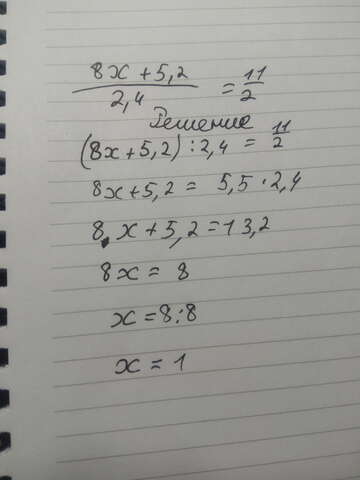 (8x + 5,2) / 2,4 = 11/2
Решение
(8x + 5,2) : 2,4 = 11/2
8x + 5,2 = 5,5 · 2,4
8.x + 5,2 = 13,2
8x = 8
x = 8:8
x = 1